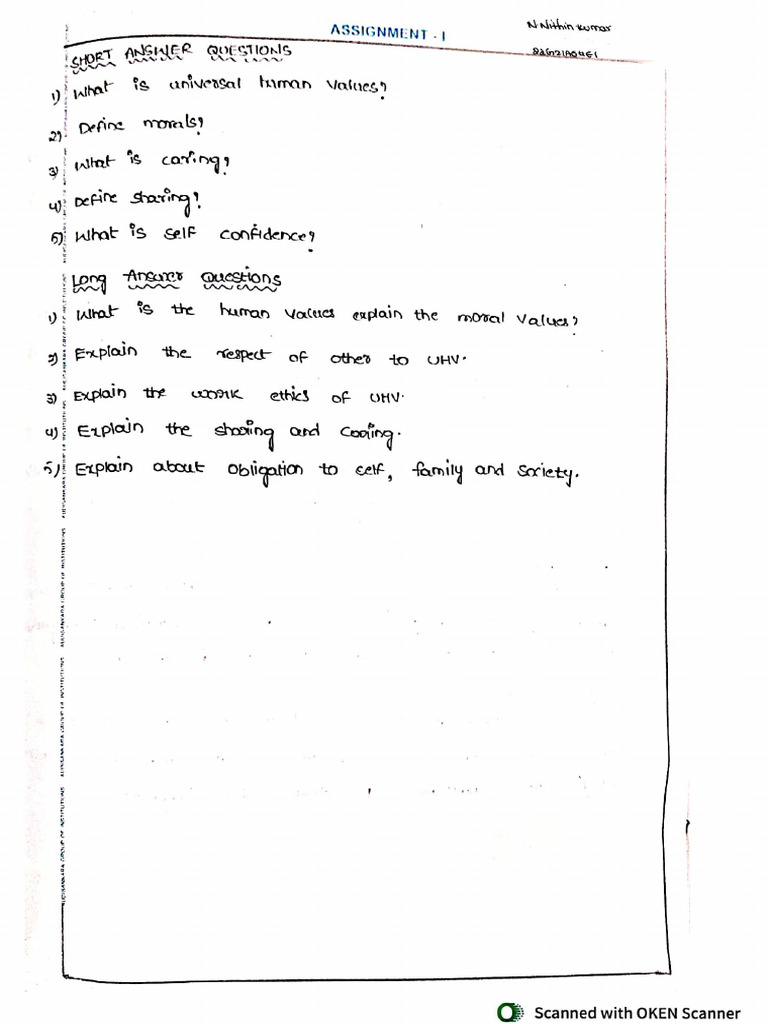 ASSIGNMENT - I
N Nithin Kumar
SHORT ANSWER QUESTIONS
1) What is universal human values?
2) Define morals?
3) What is caring?
4) Define sharing?
5) What is self confidence?
Long Answer Questions
1) What is the human values explain the moral values?
2) Explain the respect of other to UHV.
3) Explain the work ethics of UHV.
4) Explain the sharing and caring.
5) Explain about obligation to self, family and society.
Scanned with OKEN Scanner